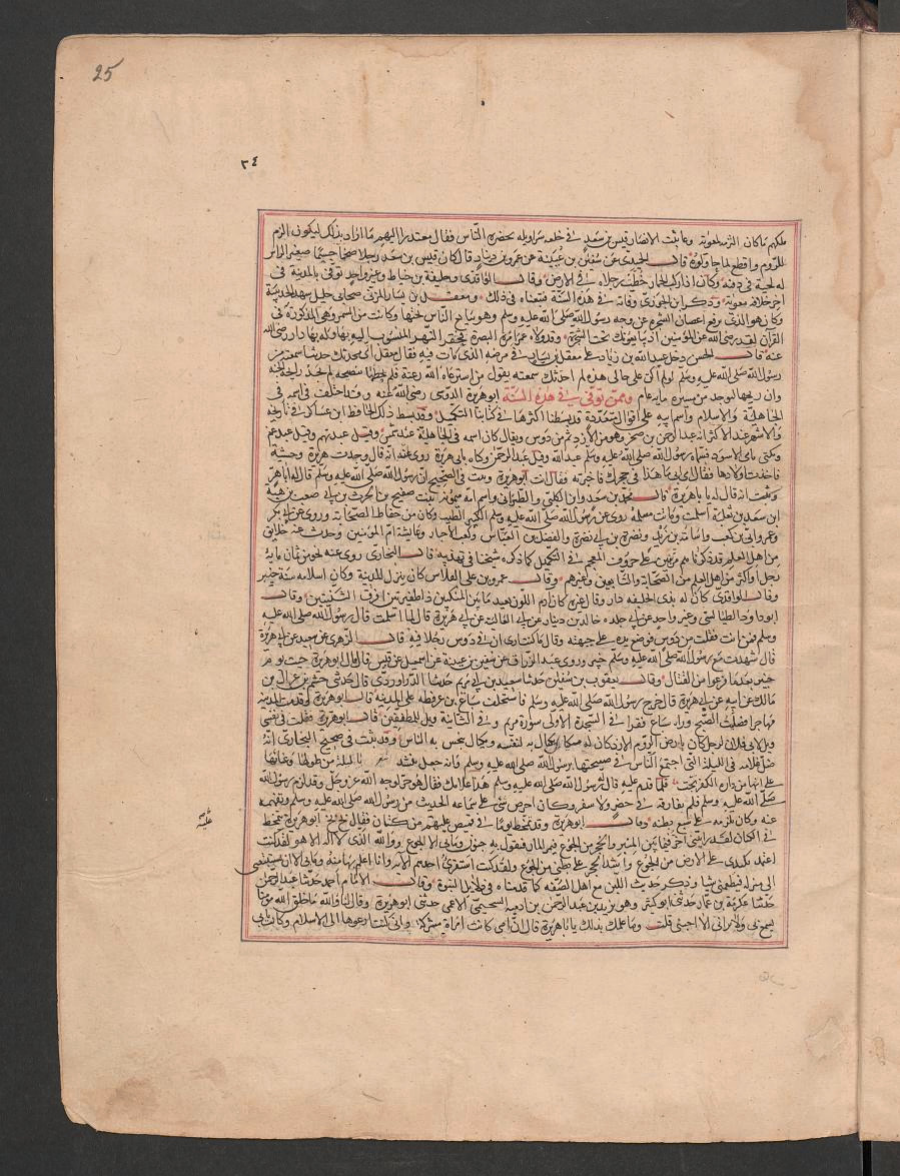 25
٢٤
ملكهم ما كان التزمه لمعوية وعاتبت الانصار قيس بن سعد في خلعه سراويله بحضرة الناس فقال معتذرا اليهم ما اراد بذلك ليكون الزم
للروم واقطع لما حاولوه قال الحميدي عن سفين بن عيينة عن عمرو بن دينار قال كان قيس بن سعد رجلا ضخما جسيما صغير الراس
له لحية في ذقنه وكان اذا ركب الحمار خطت رجلاه في الارض وقال الواقدي وخليفة بن خياط وغير واحد توفي بالمدينة في
اخر خلافة معوية وذكر ابن الجوزي وفاته في هذه السنة فتبعناه في ذلك ومعقل بن يسار المزني صحابي جليل شهد الحديبية
وكان هو الذي يرفع اغصان الشجرة عن وجه رسول الله صلى الله عليه وسلم وهو يبايع الناس تحتها وكانت من السمر وهي المذكورة في
القرآن لقد رضي الله عن المؤمنين اذ يبايعونك تحت الشجرة وقد ولاه عمر امرة البصرة فحفر النهر المنسوب اليه بها وله بها دار رضي الله
عنه قال الحسن دخل عبيد الله بن زياد على معقل بن يسار في مرضه الذي مات فيه فقال معقل اني محدثك حديثا سمعته من
رسول الله صلى الله عليه وسلم لو لم اكن على حالي هذه لم احدثك سمعته يقول من استرعاه الله رعية فلم يحطها بنصيحه لم يجد رايحة الجنة
وان ريحها ليوجد من مسيرة مايه عام وممن توفي في هذه السنة ابو هريرة الدوسي رضي الله عنه وقد اختلف في اسمه في
الجاهلية والاسلام واسم ابيه على اقوال متعددة قد بسطنا اكثرها في كتابنا التكميل وقد بسط ذلك الحافظ ابن عساكر في تاريخه
والاشهر عند الاكثر انه عبد الرحمن بن صخر وهو من الازد ثم من دوس ويقال كان اسمه في الجاهلية عبد شمس وقيل عبد نهم وقيل عبد غنم
ويكنى بابي الاسود فسماه رسول الله صلى الله عليه وسلم عبد الله وقيل عبد الرحمن وكناه بابي هريرة روي عنه انه قال وجدت هريرة وحشية
فاخذت اولادها فقال لي ابي ما هذا في حجرك فاخبرته فقال انت ابو هريرة وثبت في الصحيح ان رسول الله صلى الله عليه وسلم قال له اباهر
وثبت انه قال له يا باهريرة قال محمد بن سعد وابن الكلبي والطبراني واسم امه ميمونة بنت صفيح بن الحرث بن ابي صعب بن هنية
ابن سعد بن ثعلبة اسلمت وماتت مسلمة روى عن رسول الله صلى الله عليه وسلم الكثير الطيب وكان من حفاظ الصحابة وروى عن ابي بكر
وعمر وابي بن كعب واسامة بن زيد ونضرة بن ابي نضرة والفضل بن العباس وكعب الاحبار وعايشة ام المؤمنين وحدث عنه خلايق
من اهل العلم قد ذكرناهم مرتبين على حروف المعجم في التكميل كما ذكره شيخنا في تهذيبه قال البخاري روى عنه نحو من ثمان ماية
رجل او اكثر من اهل العلم من الصحابة والتابعين وغيرهم وقال عمرو بن علي الفلاس كان ينزل المدينة وكان اسلامه سنة خيبر
وقال الواقدي كان له بذي الحليفه دار وقال غيره كان ادم اللون بعيد ما بين المنكبين ذا ظفيرتين افرق الثنيتين وقال
ابو داود الطيالسي وغير واحد عن ابي خلدة خالد بن دينار عن ابي العالية عن ابي هريرة قال لما اسلمت قال رسول الله صلى الله عليه
وسلم ممن انت فقلت من دوس فوضع يده على جبهته وقال ما كنت ارى ان في دوس رجلا فيه قال الزهري عن سعيد عن ابي هريرة
قال شهدت مع رسول الله صلى الله عليه وسلم خيبر وروى عبد الرزاق عن سفين بن عيينة عن اسمعيل عن قيس قال قال ابو هريرة جيت يوم
خيبر بعدما فرغوا من القتال وقال يعقوب بن سفين حدثنا سعيد بن ابي مريم حدثنا الدراوردي قال حدثني خثيم بن عراك بن
مالك عن ابيه عن ابي هريرة قال خرج رسول الله صلى الله عليه وسلم فاستخلف سباع بن عرفطة على المدينة قال ابو هريرة وقدمت المدينة
مهاجرا فصليت الصبح وراء سباع فقرا في السجدة الاولى سورة مريم وفي الثانية ويل للمطففين قال ابو هريرة فقلت في نفسي
ويل لابي فلان لرجل كان بارض الازد كان له مكيال يكتال به لنفسه ومكيال يبخس به الناس وقد ثبت في صحيح البخاري انه
ضل غلامه في الليلة التي اجتمع الناس في صبيحتها برسول الله صلى الله عليه وسلم وانه جعل ينشد يا ليلة من طولها وعنائها
على انها من دارة الكفر نجت فلما قدم عليه قال له رسول الله صلى الله عليه وسلم هذا غلامك فقال هو حر لوجه الله عز وجل وقد لزم رسول الله
صلى الله عليه وسلم فلم يفارقه في حضر ولا سفر وكان احرص شي على سماعه الحديث من رسول الله صلى الله عليه وسلم وتفهمه
عنه وكان يلزمه على شبع بطنه وقال ابو هريرة وقد تمخط يوما في قميص عليهم من كتان فقال بخ بخ ابو هريرة يتمخط
في الكتان لقد رايتني اخر فيما بين المنبر والحجر من الجوع فيمر المار فيقول به جنون وما بي الا الجوع والله الذي لا اله الا هو لقد كنت
اعتمد بكبدي على الارض من الجوع واشد الحجر على بطني من الجوع ولقد كنت استقري احدهم الاية وانا اعلم بها منه وما بي الا ان يستتبعني
الى منزله فيطعمني شيا وذكر حديث اللبن مع اهل الصفة كما قدمناه في دلايل النبوة وقال الامام احمد حدثنا عبد الرحمن
حدثنا عكرمة بن عمار حدثني ابو كثير وهو يزيد بن عبد الرحمن بن اذينة السحيمي الاعمى حدثني ابو هريرة وقال لنا والله ما خلق الله مومنا
يسمع بي ولا يراني الا احبني قلت وما علمك بذلك يا با هريرة قال ان امي كانت امراة مشركة واني كنت ادعوها الى الاسلام وكانت تابى